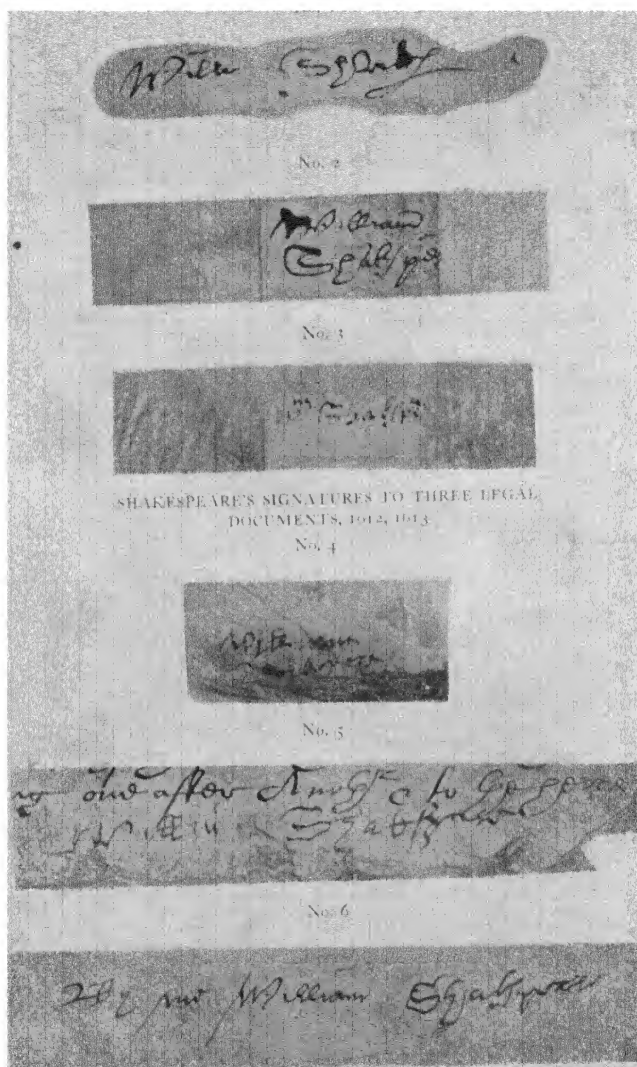 Willm Shakp
No. 2
William
Shakspēr
No. 3
Wm Shakspē
SHAKESPEARE'S SIGNATURES TO THREE LEGAL
DOCUMENTS, 1912, 1613
No. 4
No. 5
after
Willm Shakspere
No. 6
By me William Shakspeare